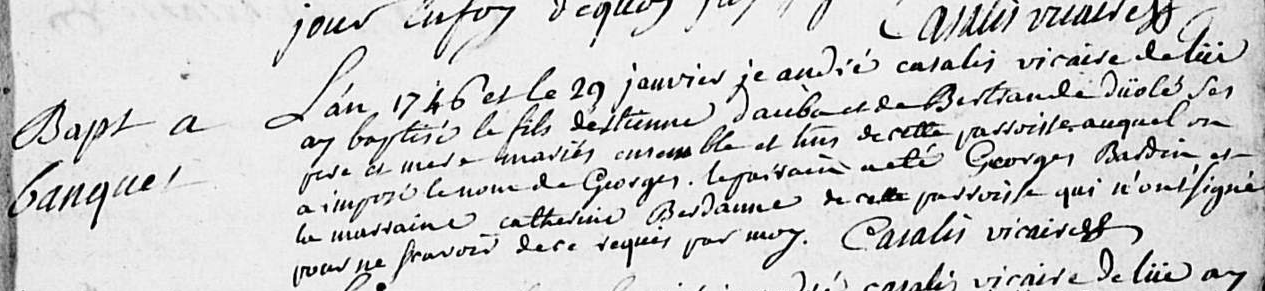 jour en foy dequoy
Casalis vicaire
Bapt a
banquet
L'an 1746 et le 29 janvier je andré casalis vicaire de liie
ay baptisé le fils d'estienne daube et de Bertrande düolé ses
pere et mere mariés ensemble et tous de cette parroisse auquel on
a imposé le nom de Georges. le pairain a eté Georges Bardin et
la marraine catherine Berdanne de cette parroisse qui n'ont signé
pour ne scavoir de ce requis par moy. Casalis vicaire
casalis vicaire de liie ay